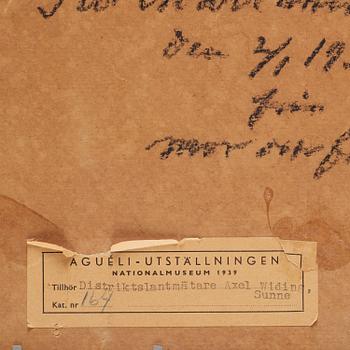 den 2/1 19
från
mor och f
AGUÉLI-UTSTÄLLNINGEN
NATIONALMUSEUM 1939
Tillhör Distriktslantmätare Axel Widing,
Sunne
Kat. nr 164